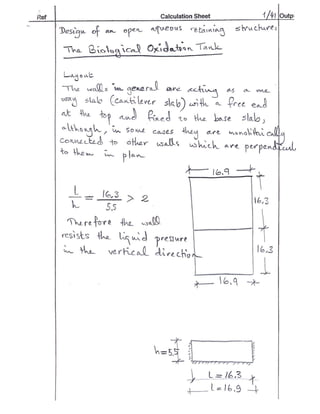 Ref Calculation Sheet 1/41 Outp
Design of an open aqueous retaining structure:
The Biological Oxidation Tank
Layout
The walls in general are acting as a one
way slab (cantilever slab) with a free end
at the top and fixed to the base slab,
although, in some cases they are monolithically
connected to other walls which are perpendicul
to them in plan.
16.9
L/h = 16.3/5.5 > 2
16.3
Therefore the wall
resists the liquid pressure
in the vertical direction
16.3
16.9
h=5.5
L=16.3
L=16.9